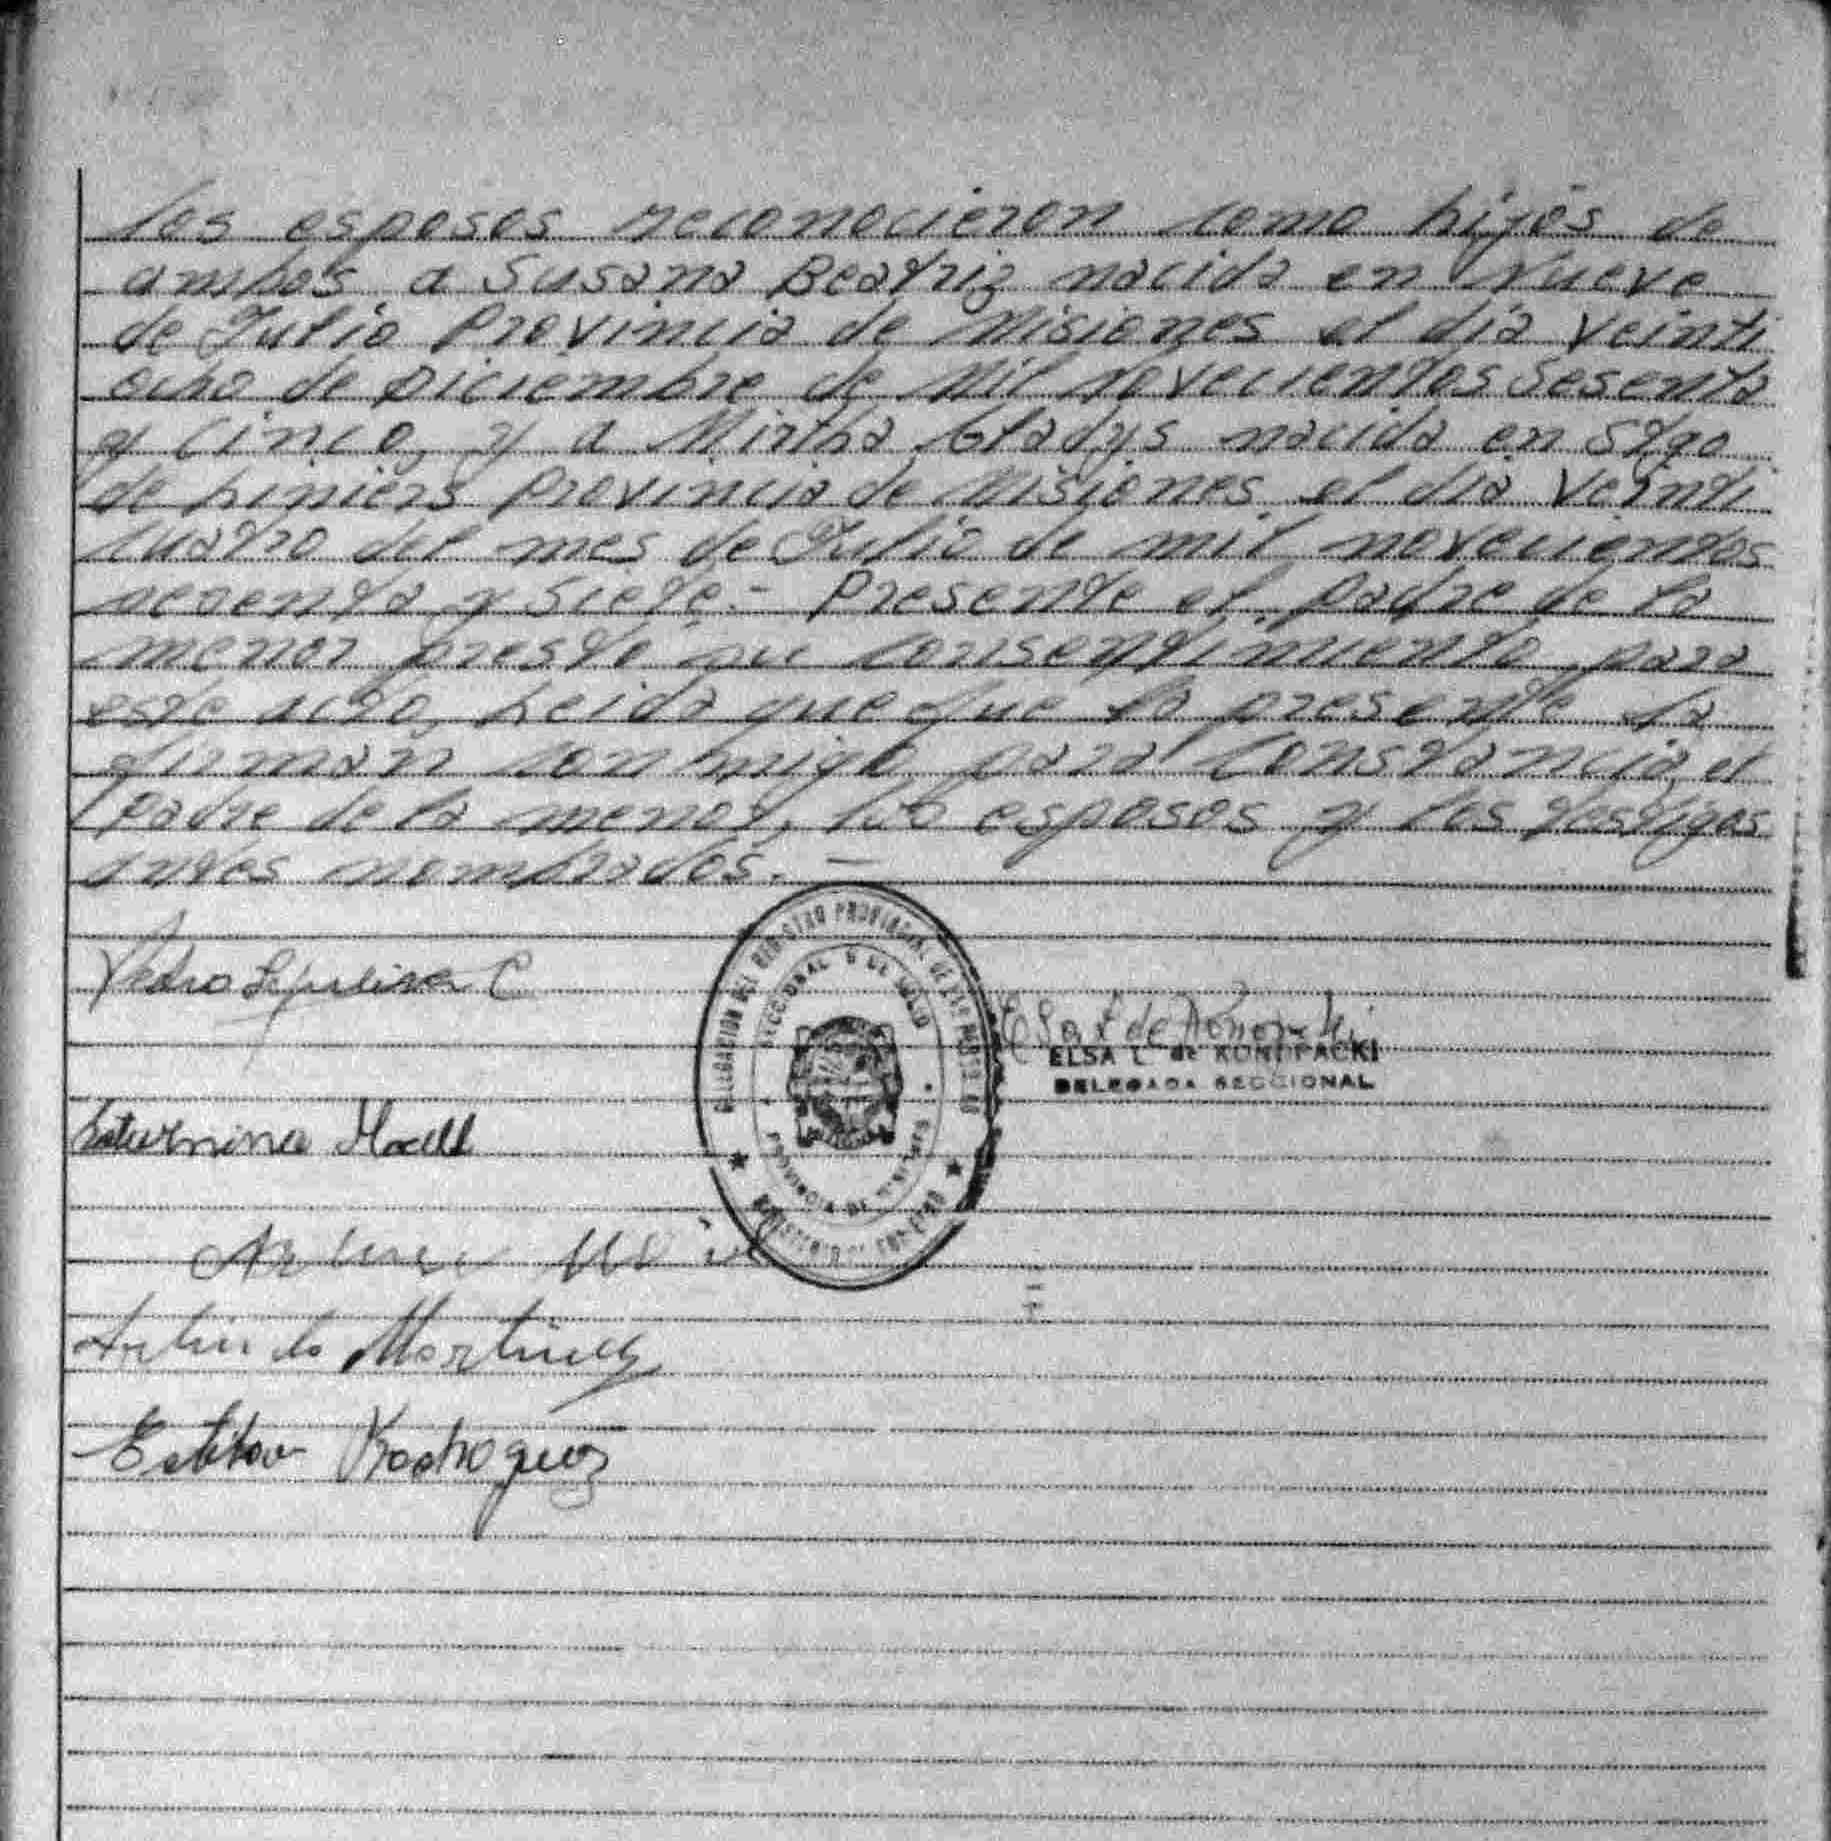 los esposos reconocieron como hijos de
ambos a Susana Beatriz nacida en Nueve
de Julio Provincia de Misiones el día veinti
ocho de Diciembre de Mil novecientos Sesenta
y Cinco, y a Mirtha Gladys nacida en Stgo
de Liniers Provincia de Misiones el día Veinti
cuatro del mes de Julio de mil novecientos
sesenta y Siete.- Presente el padre de la
menor presto su consentimiento para
este acto, Leida que fue la presente la
firman conmigo para Constancia, el
padre de la menor, los esposos y los testigos
antes nombrados. —
Pedro C
DELEGACION DEL REGISTRO PROVINCIAL DE LAS PERSONAS
SECCIONAL 9 DE JULIO
PROVINCIA DE MISIONES
MINISTERIO DE GOBIERNO
Elsa L de Konopacki
ELSA L. de KONOPACKI
DELEGADA SECCIONAL
Saturnina
Martinez
Esteban Rodriguez